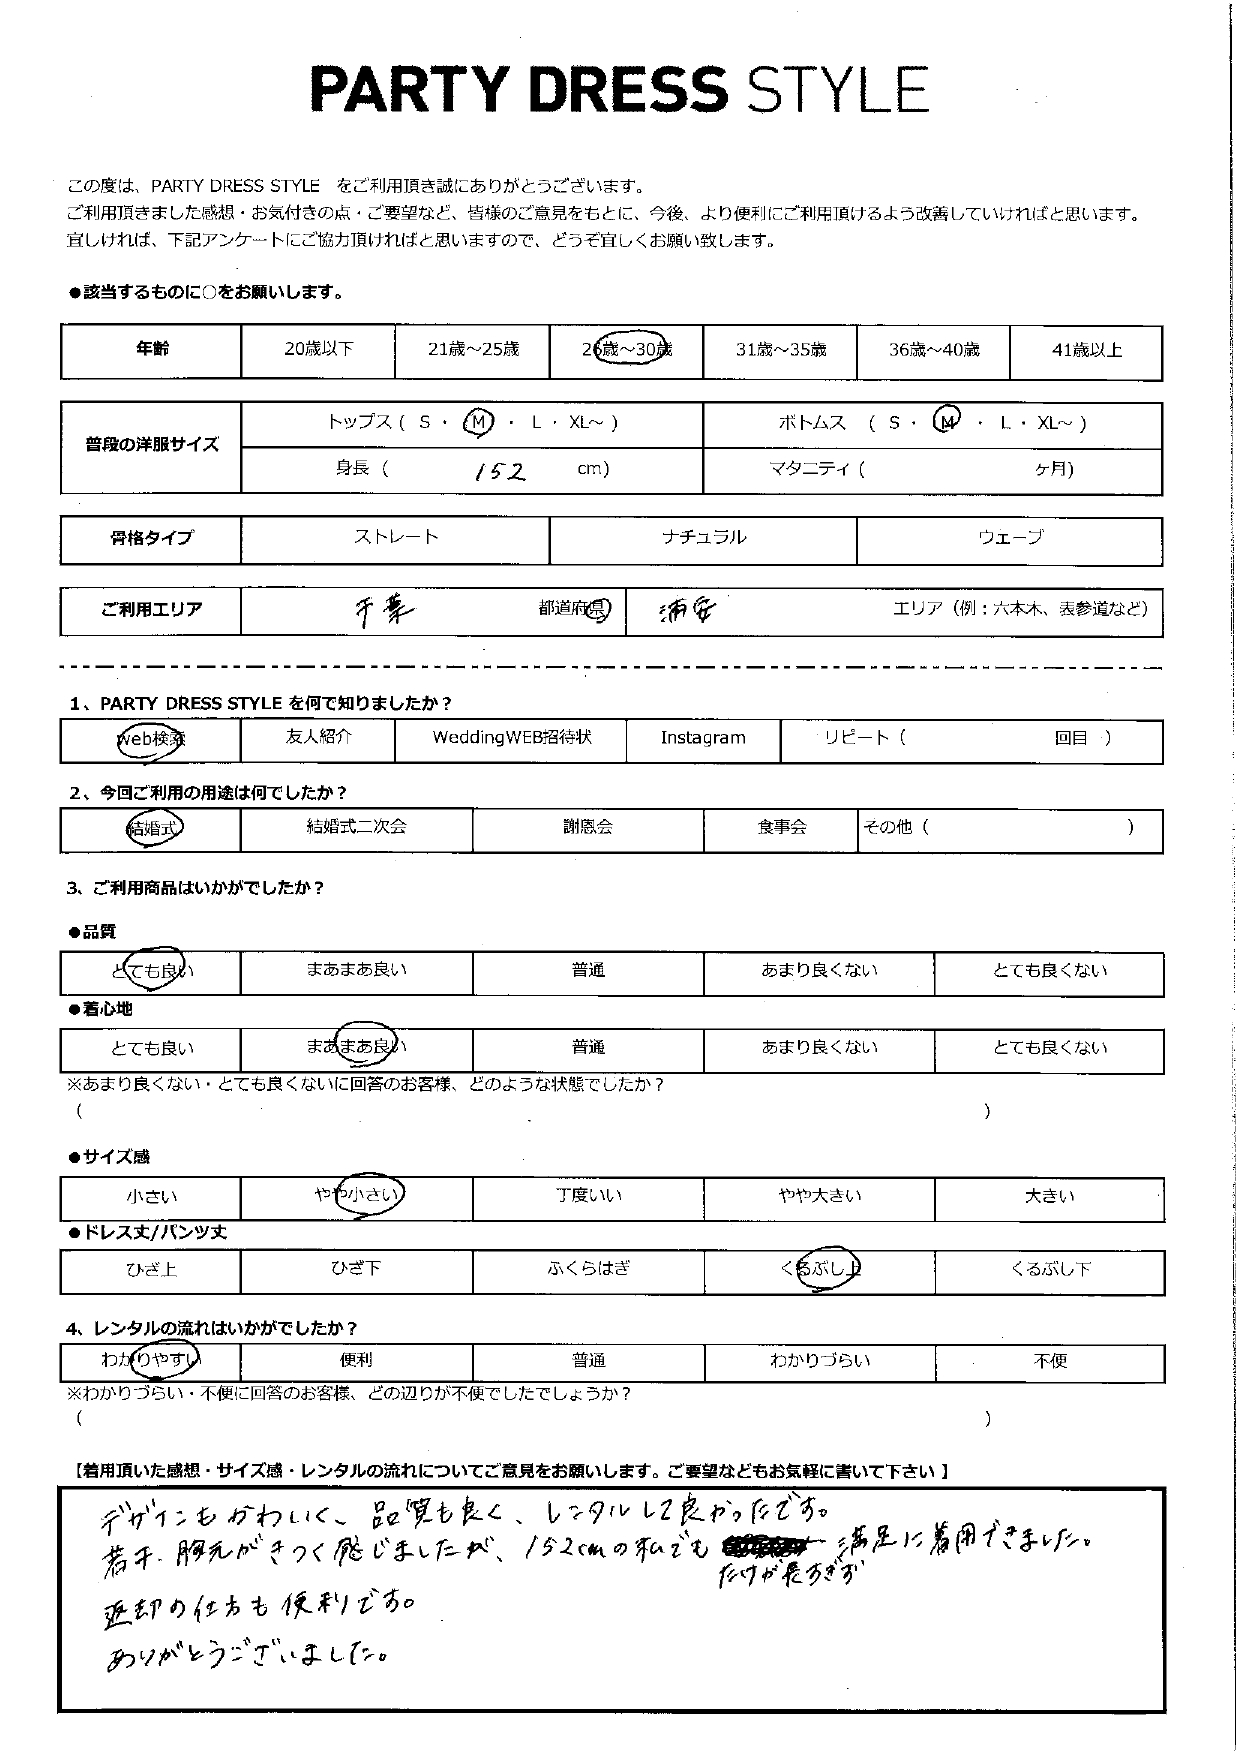 PARTY DRESS STYLE
この度は、PARTY DRESS STYLE をご利用頂き誠にありがとうございます。
ご利用頂きました感想・お気付きの点・ご要望など、皆様のご意見をもとに、今後、より便利にご利用頂けるよう改善していければと思います。
宜しければ、下記アンケートにご協力頂ければと思いますので、どうぞ宜しくお願い致します。
●該当するものに○をお願いします。
年齢 20歳以下 21歳～25歳 26歳～30歳 31歳～35歳 36歳～40歳 41歳以上
普段の洋服サイズ トップス ( S ・ M ・ L ・ XL～ ) ボトムス ( S ・ M ・ L ・ XL～ )
身長 ( 152 cm) マタニティ ( ヶ月)
骨格タイプ ストレート ナチュラル ウェーブ
ご利用エリア 千葉 都道府県 浦安 エリア（例：六本木、表参道など）
1、PARTY DRESS STYLE を何で知りましたか？
Web検索 友人紹介 WeddingWEB招待状 Instagram リピート ( 回目 )
2、今回ご利用の用途は何でしたか？
結婚式 結婚式二次会 謝恩会 食事会 その他 ( )
3、ご利用商品はいかがでしたか？
●品質
とても良い まあまあ良い 普通 あまり良くない とても良くない
●着心地
とても良い まあまあ良い 普通 あまり良くない とても良くない
※あまり良くない・とても良くないに回答のお客様、どのような状態でしたか？
( )
●サイズ感
小さい やや小さい 丁度いい やや大きい 大きい
●ドレス丈/パンツ丈
ひざ上 ひざ下 ふくらはぎ くるぶし上 くるぶし下
4、レンタルの流れはいかがでしたか？
わかりやすい 便利 普通 わかりづらい 不便
※わかりづらい・不便に回答のお客様、どの辺りが不便でしたでしょうか？
( )
【着用頂いた感想・サイズ感・レンタルの流れについてご意見をお願いします。ご要望などもお気軽に書いて下さい 】
デザインもかわいく、品質も良く、レンタルして良かったです。
若干、胸元がきつく感じましたが、152cmの私でも 満足に着用できました。
たけが長すぎず
返却の仕方も便利です。
ありがとうございました。